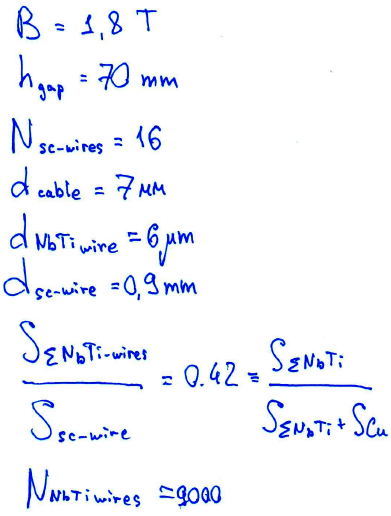 B = 1,8 T
h gap = 70 mm
N sc-wires = 16
d cable = 7 мм
d NbTi wire = 6 μm
d sc-wire = 0,9 mm
S Σ NbTi-wires / S sc-wire = 0.42 = S Σ NbTi / S Σ NbTi + S Cu
N NbTi wires = 9000